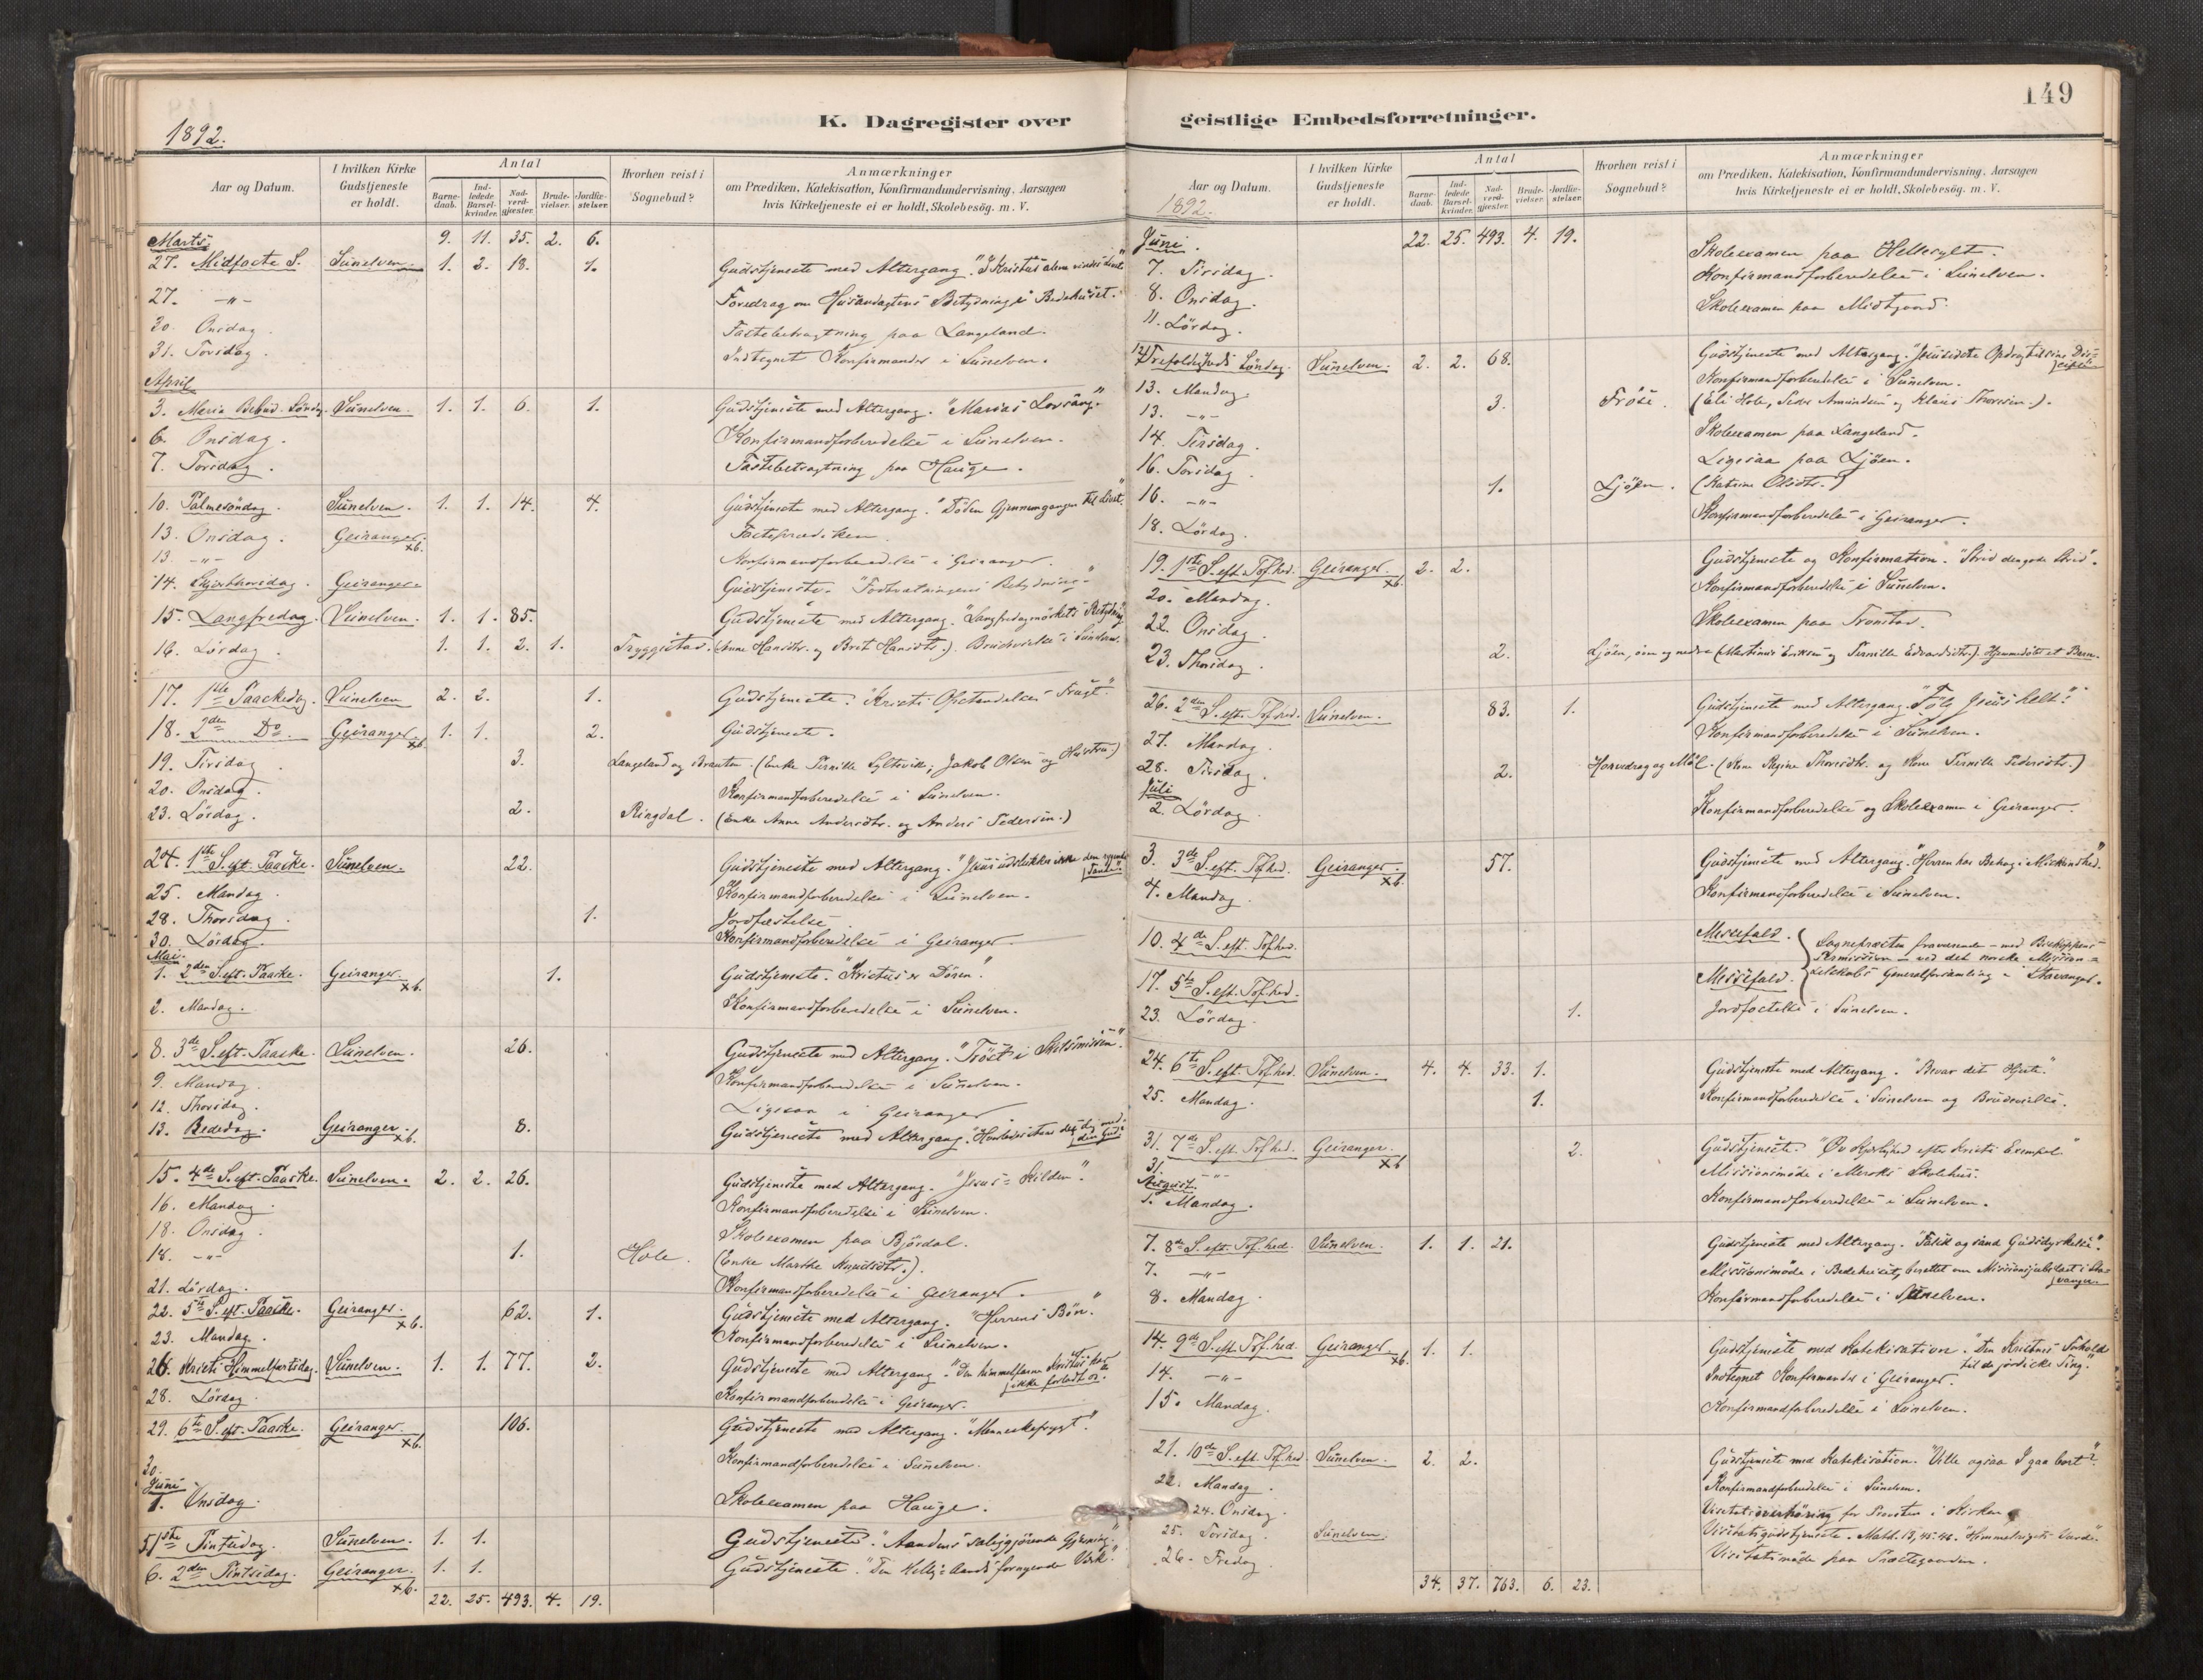 149
1892.
K. Dagregister over geistlige Embedsforretninger.
Aar og Datum. I hvilken Kirke Gudstjeneste er holdt. Antal Barnedaab. Indledede Barselkvinder. Nadverdgjæster. Brudevielser. Jordfæstelser. Hvorhen reist i Sognebud? Anmærkninger om Prædiken, Katekisation, Konfirmandundervisning. Aarsagen hvis Kirketjeneste ei er holdt, Skolebesög. m. V.
Marts. 9. 11. 35. 2. 6.
27. Midfaste S. Sünelven. 1. 2. 18. 1. Gudstjeneste med Altergang. "I Kristus alene vindes Livet"
27. -"- Foredrag om Husandagtens Betydning i Bedehuset.
30. Onsdag. Fastebetragtning paa Langeland.
31. Torsdag. Indtegnet Konfirmander i Sünelven.
April
3. Maria Bebud. Søndag. Sünelven. 1. 1. 6. 1. Gudstjeneste med Altergang. "Marias Lovsang."
6. Onsdag. Konfirmandforberedelse i Sünelven.
7. Torsdag. Fastebetragtning paa Hauge.
10. Palmesöndag. Sünelven. 1. 1. 14. 4. Gudstjeneste med Altergang. "Döden Gjennemgangen til Livet."
13. Onsdag. Geiranger. x6. Fasteprædiken.
13. -"- Konfirmandforberedelse i Geiranger.
14. Skjærthorsdag. Geiranger. Gudstjeneste. "Fodtvætningens Betydning."
15. Langfredag. Sünelven. 1. 1. 85. Gudstjeneste med Altergang. "Langfredagsmörkets Betydning"
16. Lördag. 1. 1. 2. 1. Tryggestad. (Anne Hansdtr. og Brit Hansdtr.). Brudevielse i Sünelven.
17. 1ste Paaskedag. Sünelven 2. 2. 1. Gudstjeneste. "Kristi Opstandelses Frugt."
18. 2den Do. Geiranger. x6. 1. 1. 2. Gudstjeneste.
19. Tirsdag. 3. Langeland og Brauten. (Enke Pernille Syltevik, Jakob Olsen og Hustru.)
20. Onsdag. Konfirmandforberedelse i Sünelven.
23. Lördag. 2. Ringdal. (Enke Anne Andersdtr. og Anders Pedersen.)
24. 1ste S. eft. Paaske. Sünelven. 22. Gudstjeneste med Altergang. "Jesus udslukker ikke den rygende Tande."
25. Mandag. Konfirmandforberedelse i Sünelven.
28. Thorsdag. 1. Jordfæstelse
30. Lördag. Konfirmandforberedelse i Geiranger.
Mai.
1. 2den S. eft. Paaske. Geiranger. x6. 1. Gudstjeneste. "Kristus er Dören."
2. Mandag. Konfirmandforberedelse i Sünelven.
8. 3de S. eft. Paaske. Sünelven. 26. Gudstjeneste med Altergang. "Tröst i Skilsmissen."
9. Mandag. Konfirmandforberedelse i Sünelven.
12. Thorsdag. Ligesaa i Geiranger
13. Bededag. Geiranger. x6. 8. Gudstjeneste med Altergang. din Gud."
15. 4de S. eft. Paaske. Sünelven. 2. 2. 26. Gudstjeneste med Altergang. "Jesus = Kilden".
16. Mandag. Konfirmandforberedelse i Sünelven.
18. Onsdag. Skoleexamen paa Björdal.
18. -"- 1. Hole. (Enke Marthe Knudsdtr.).
21. Lördag. Konfirmandforberedelse i Geiranger.
22. 5te S. eft. Paaske. Geiranger. x6. 62. 1. Gudstjeneste med Altergang. "Herrens Bön."
23. Mandag. Konfirmandforberedelse i Sünelven.
26. Kristi Himmelfartsdag. Sünelven. 1. 1. 77. 2. Gudstjeneste med Altergang. "Den himmelfarne Kristus har ikke forladt os."
28. Lördag. Konfirmandforberedelse i Geiranger.
29. 6te S. eft. Paaske. Geiranger. x6. 106. Gudstjeneste med Altergang. "Menneskefrygt."
30. Konfirmandforberedelse i Sünelven.
Juni
1. Onsdag. Skoleexamen paa Hauge.
5. 1ste Pintsedag. Sünelven. 1. 1. Gudstjeneste. "Aandens saliggjörende Gjerning."
6. 2den Pintsedag. Geiranger. x6. 1. 1. Gudstjeneste. "Den Hellig Aands fornyende Værk."
22. 25. 493. 4. 19.
Aar og Datum. 1892. I hvilken Kirke Gudstjeneste er holdt. Antal Barnedaab. Indledede Barselkvinder. Nadverdgjæster. Brudevielser. Jordfæstelser. Hvorhen reist i Sognebud? Anmærkninger om Prædiken, Katekisation, Konfirmandundervisning. Aarsagen hvis Kirketjeneste ei er holdt, Skolebesög. m. V.
Juni. 22. 25. 493. 4. 19.
7. Tirsdag. Skoleexamen paa Hellesylt.
8. Onsdag. Konfirmandforberedelse i Sünelven.
11. Lördag. Skoleexamen paa Midtgaard.
12. Trefoldigheds Söndag. Sünelven. 2. 2. 68. Gudstjeneste med Altergang.
13. Mandag. Konfirmandforberedelse i Sünelven.
13. -"- 3. Fröse. (Eli Hole, Peder Amundsen og Klaus Thoresen.).
14. Tirsdag. Skoleexamen paa Langeland.
16. Torsdag. Ligesaa paa Ljöen.
16. -"- 1. Ljöen. (Katrine Olsdtr.)
18. Lördag. Konfirmandforberedelse i Geiranger.
19. 1ste S. eft. Tref.hed. Geiranger. x6. 2. 2. Gudstjeneste og Konfirmation. "Strid den gode Strid".
20. Mandag. Konfirmandforberedelse i Sünelven.
22. Onsdag. Skoleexamen paa Tronstad.
23. Thorsdag. 2. Ljöen, övre og nedre (Martinus Eriksen og Pernille Edvardsdtr.). Hjemmedöbt et Barn.
26. 2den S. eft. Tref.hed. Sünelven. 83. 1. Gudstjeneste med Altergang. "Fölg Jesus helt!"
27. Mandag. Konfirmandforberedelse i Sünelven.
28. Tirsdag. 2. Horvedrag og Möl. (Kone Regine Thoresdtr. og Kone Pernille Pedersdtr.)
Juli
2. Lördag. Konfirmandforberedelse og Skoleexamen i Geiranger.
3. 3de S. eft. Tref.hed. Geiranger. x6. 57. Gudstjeneste med Altergang. "Herren har Behag i Miskundhed."
4. Mandag. Konfirmandforberedelse i Sünelven.
10. 4de S. eft. Tref.hed. Messefald. Sognepresten fraværende – med Biskoppens Permission – ved det norske Missions=
17. 5te S. eft. Tref.hed. Messefald. Selskabs Generalforsamling i Stavanger.
23. Lördag. 1. Jordfæstelse i Sünelven.
24. 6te S. eft. Tref.hed. Sünelven. 4. 4. 33. 1. Gudstjeneste med Altergang. "Bevar dit Hjerte."
25. Mandag. 1. Konfirmandforberedelse i Sünelven og Brudevielse.
31. 7de S. eft. Tref.hed. Geiranger. x6 2. Gudstjeneste. "Öv Kjærlighed efter Kristi Exempel."
31. -"- Missionsmöde i Meroks Skolehus.
August.
1. Mandag. Konfirmandforberedelse i Sünelven.
7. 8de S. eft. Tref.hed. Sünelven. 1. 1. 21. Gudstjeneste med Altergang. "Falsk og sand Gudsdyrkelse."
7. -"- Missionsmöde i Bedehuset, berettet om Missionsjubelaaret i Stavanger
8. Mandag. Konfirmandforberedelse i Sünelven.
14. 9de S. eft. Tref.hed. Geiranger. x6. 1. 1. Gudstjeneste med Katekisation. "Den Kristnes Forhold til de jordiske Ting."
14. -"- Indtegnet Konfirmander i Geiranger.
15. Mandag. Konfirmandforberedelse i Sünelven.
21. 10de S. eft. Tref.hed. Sünelven. 2. 2. Gudstjeneste med Katekisation. "Ville ogsaa I gaa bort?"
22. Mandag. Konfirmandforberedelse i Sünelven.
24. Onsdag. Visitatsoverhöring for Provsten i Kirken
25. Torsdag. Sünelven. Visitatsgudstjeneste. Matth. 13, 45-46. "Himmerigets Værdi."
26. Fredag. Visitatsmöde paa Præstegaarden.
34. 37. 763. 6. 23.